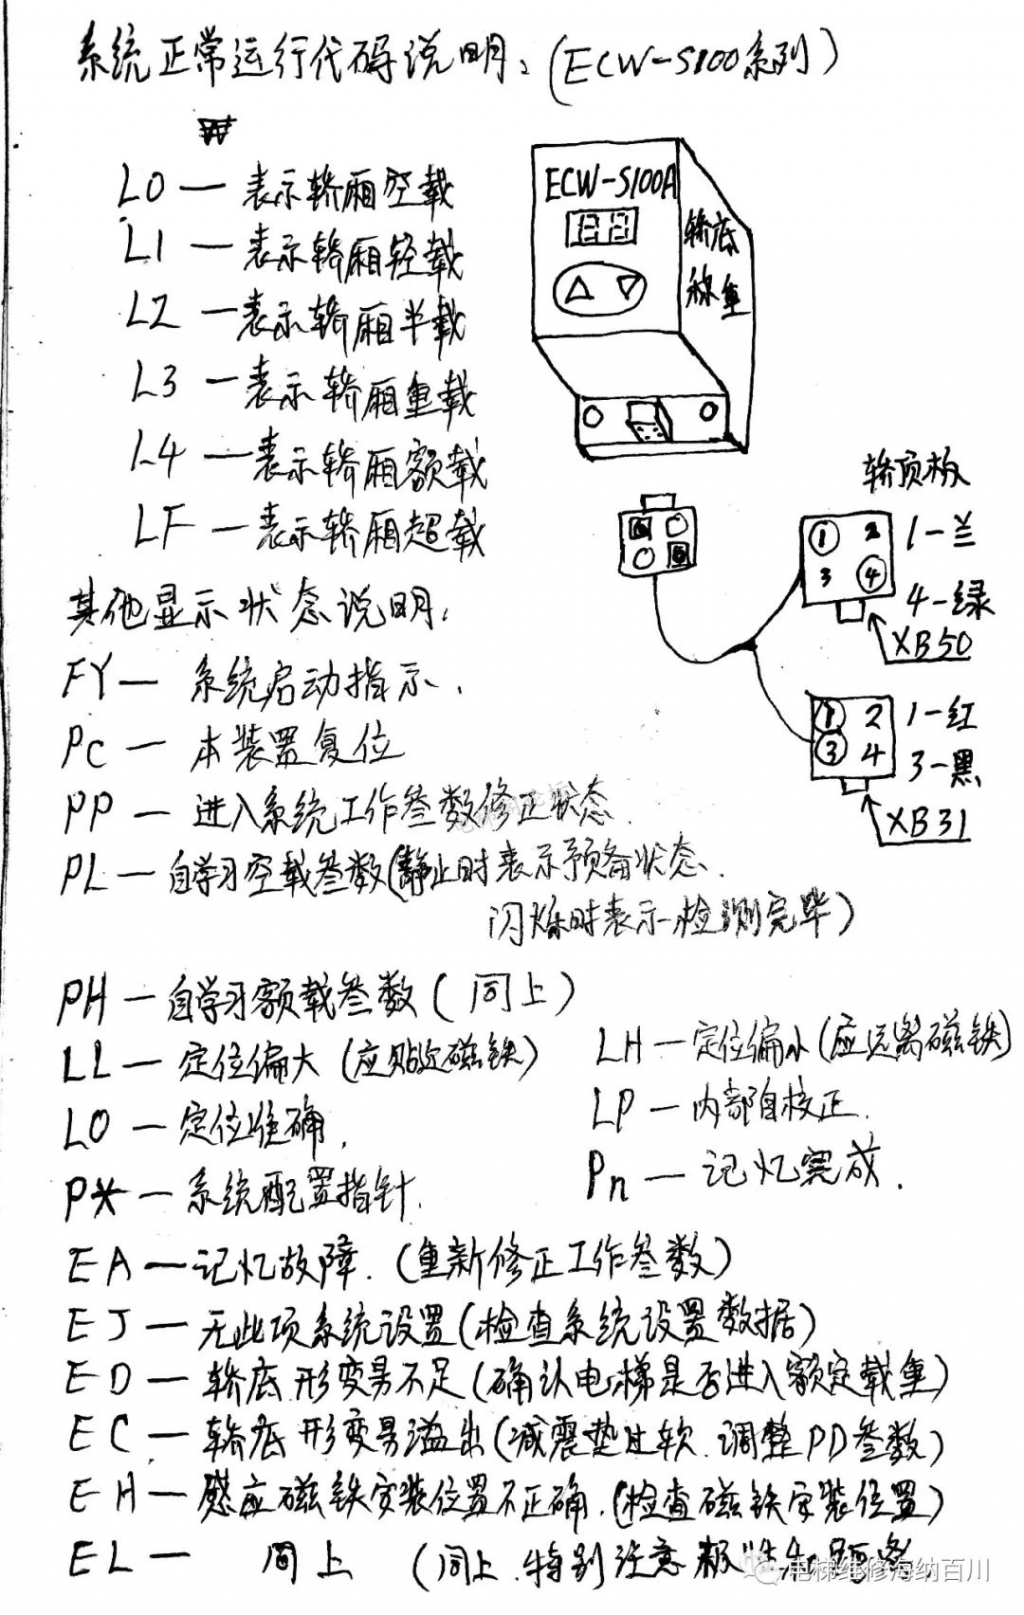 系统正常运行代码说明：(ECW-S100系列)
L0 — 表示轿厢空载
L1 — 表示轿厢轻载
L2 — 表示轿厢半载
L3 — 表示轿厢重载
L4 — 表示轿厢额载
LF — 表示轿厢超载
ECW-S100A
轿底
称重
轿顶板
① 2
3 ④
1-兰
4-绿
XB50
① 2
③ 4
1-红
3-黑
XB31
其他显示状态说明：
FY — 系统启动指示.
Pc — 本装置复位
PP — 进入系统工作叁数修正状态.
PL — 自学习空载叁数(静止时表示预备状态.
闪烁时表示检测完毕)
PH — 自学习额载叁数(同上)
LL — 定位偏大(应贴近磁铁) LH — 定位偏小(应远离磁铁)
LO — 定位准确. LP — 内部自校正.
P* — 系统配置指针. Pn — 记忆完成.
EA — 记忆故障.(重新修正工作叁数)
EJ — 无此项系统设置(检查系统设置数据)
ED — 轿底形变易不足(确认电梯是否进入额定载重)
EC — 轿底形变易溢出(减震垫过软.调整PD叁数)
EH — 感应磁铁安装位置不正确.(检查磁铁安装位置)
EL — 同上 (同上.特别注意
电梯维修海纳百川